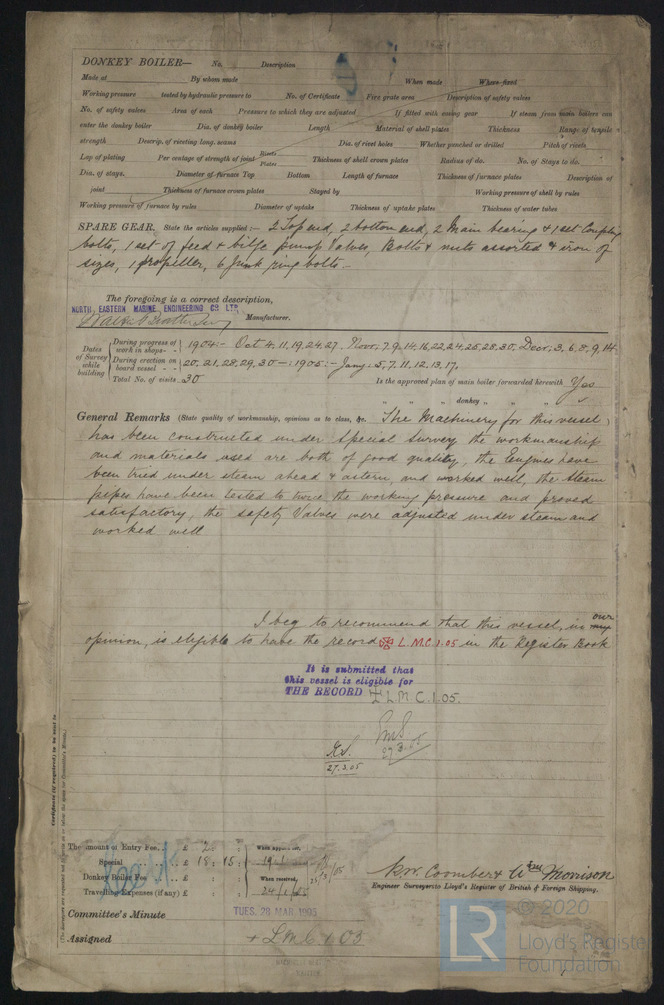 DONKEY BOILER— No. Description
Made at By whom made When made Where fixed
Working pressure tested by hydraulic pressure to No. of Certificate Fire grate area Description of safety valves
No. of safety valves Area of each Pressure to which they are adjusted If fitted with easing gear If steam from main boilers can
enter the donkey boiler Dia. of donkey boiler Length Material of shell plates Thickness Range of tensile
strength Descrip. of riveting long. seams Dia. of rivet holes Whether punched or drilled Pitch of rivets
Lap of plating Per centage of strength of joint Rivets Plates Thickness of shell crown plates Radius of do. No. of Stays to do.
Dia. of stays. Diameter of furnace Top Bottom Length of furnace Thickness of furnace plates Description of
joint Thickness of furnace crown plates Stayed by Working pressure of shell by rules
Working pressure of furnace by rules Diameter of uptake Thickness of uptake plates Thickness of water tubes
SPARE GEAR. State the articles supplied:— 2 Top end, 2 bottom end, 2 Main bearing & 1 set Coupling
bolts, 1 set of feed & bilge pump Valves, Bolts & nuts assorted & iron of
sizes, 1 propeller, 6 Junk ring bolts.—
The foregoing is a correct description,
NORTH EASTERN MARINE ENGINEERING CO LTD
Manufacturer.
Dates of Survey while building
During progress of work in shops - - 1904:- Oct 4.11.19.24.27. Novr. 7.9.14.16.22.24.25.28.30. Decr. 3.6.8.9.14
During erection on board vessel - - 20.21.28.29.30—: 1905:- Jany. 5.7.11.12.13.17.
Total No. of visits 30 Is the approved plan of main boiler forwarded herewith Yes
" " " donkey " " "
General Remarks (State quality of workmanship, opinions as to class, &c. The Machinery for this vessel,
has been constructed under Special Survey the workmanship
and materials used are both of good quality, the Engines have
been tried under steam ahead & astern, and worked well, the Steam
pipes have been tested to twice the working pressure and proved
satisfactory, the safety Valves were adjusted under steam and
worked well
I beg to recommend that this vessel, in our
opinion, is eligible to have the record L.M.C. 1.05 in the Register Book
It is submitted that
this vessel is eligible for
THE RECORD L.M.C. 1.05.
27.3.05
27.3.05
Certificate (if required) to be sent to
The amount of Entry Fee. £ 2 : : When applied for,
Special £ 18 : 15 : 19.1
Donkey Boiler Fee £ : : When received,
Travelling Expenses (if any) £ : : 24/1/05
Engineer Surveyors to Lloyd's Register of British & Foreign Shipping.
Committee's Minute TUES. 28 MAR 1905
Assigned + L.M.C. 1.05
LR
© 2020
Lloyd's Register
Foundation